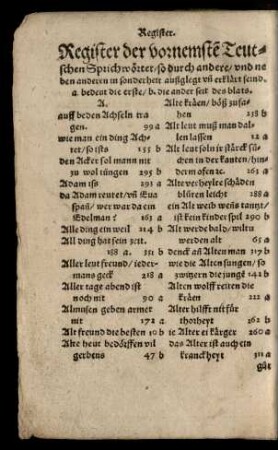 Register.
Register der vornemstē Teut⸗
schen Sprichwörter/ so durch andere/ vnd ne
ben anderen in sonderheit außglegt vn̄ erklärt seind.
a. bedeut die erste/ b. die ander seit des blats.
A.
auff beden Achseln tra
gen. 99 a
wie man ein ding Ach⸗
tet/ so ists 155 b
den Acker sol mann nit
zu wol tüngen 295 b
Adam iss 291 a
da Adam reutet/ vn̄ Eua
spañ/ wer war da ein
Edelman? 161 a
Alle ding ein weil 214 b
All ding hat sein zeit.
188 a. 251 b
Aller leut freund/ ieder⸗
mans geck 218 a
Aller tage abend ist
noch nit 90 a
Almusen geben armet
nit 172 a
Alt freund die besten 10 b
Alte heut bedörffen vil
gerbens 47 b
Alte kräen/ böß zufa⸗
hen 218 b
Alt leut muß man da⸗
len lassen 12 a
Alt leut soln ir stärck sü⸗
chen in der kanten/ hin⸗
derm ofen ꝛc. 261 a
Alte verheylte schäden
blüten leicht 188 a
Ein alt weib wens tantzt/
ist kein kinder spil 290 b
Alt werde bald/ wiltu
werden alt 65 a
denck an Alten man 117 b
wie die Alten sungen/ so
zwitzern die jungē 142 b
Alten wolff reiten die
kräen 222 a
Alter hilfft nit für
thorheyt 162 b
ie Alter ei kärger 260 a
das Alter ist auch ein
kranckheyt 311 a
güt